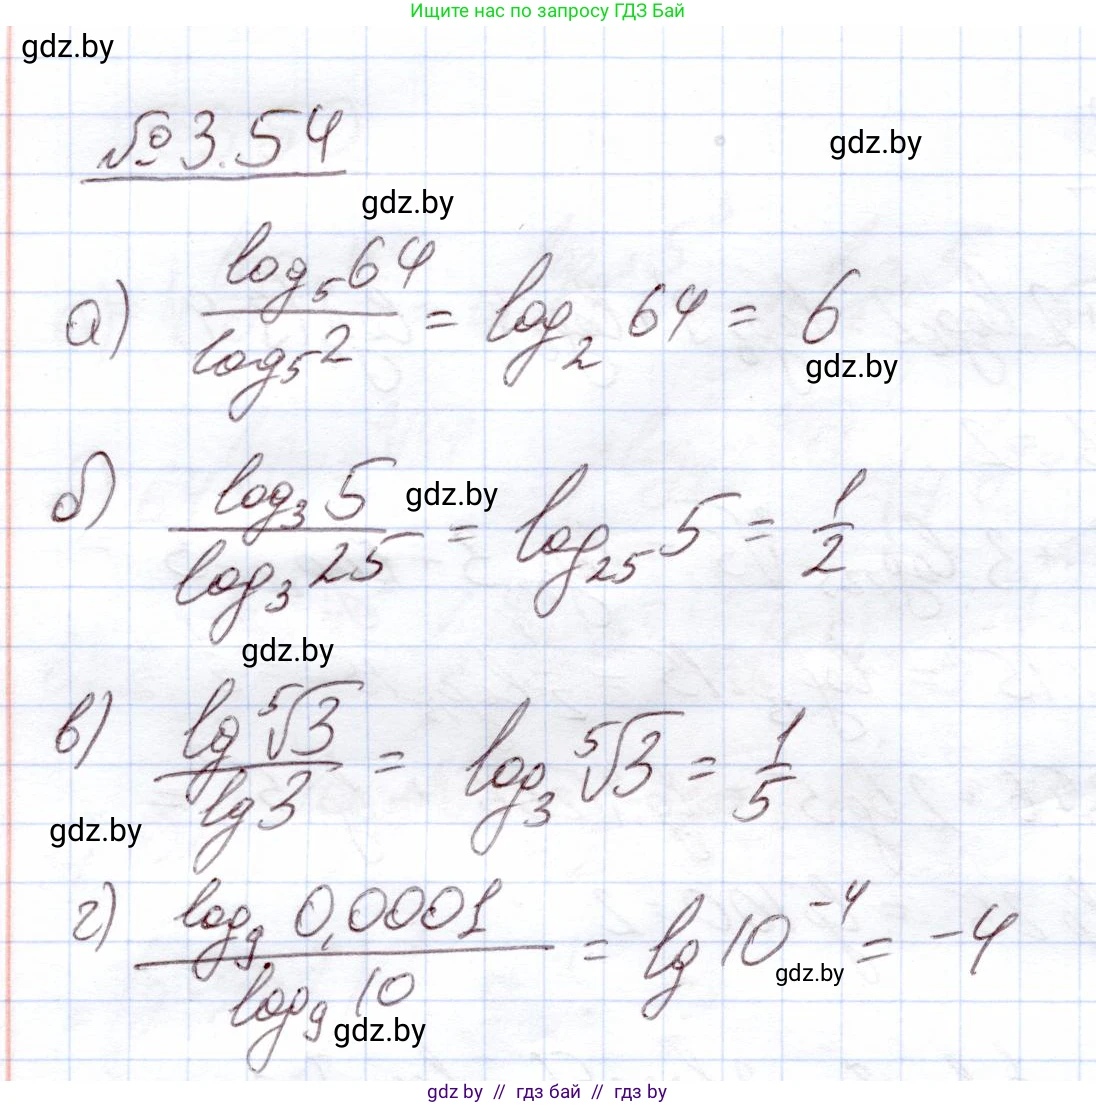 Ищите нас по запросу ГДЗ Бай
gdz.by
№ 3.54
gdz.by
gdz.by
а) log₅64 / log₅2 = log₂ 64 = 6
gdz.by
б) log₃5 / log₃25 = log₂₅5 = 1/2
gdz.by
gdz.by
в) lg ⁵√3 / lg 3 = log₃ ⁵√3 = 1/5
gdz.by
г) log₉ 0,0001 / log₉ 10 = lg 10⁻⁴ = -4
gdz.by
gdz.by
gdz by // гдз бай // гдз by